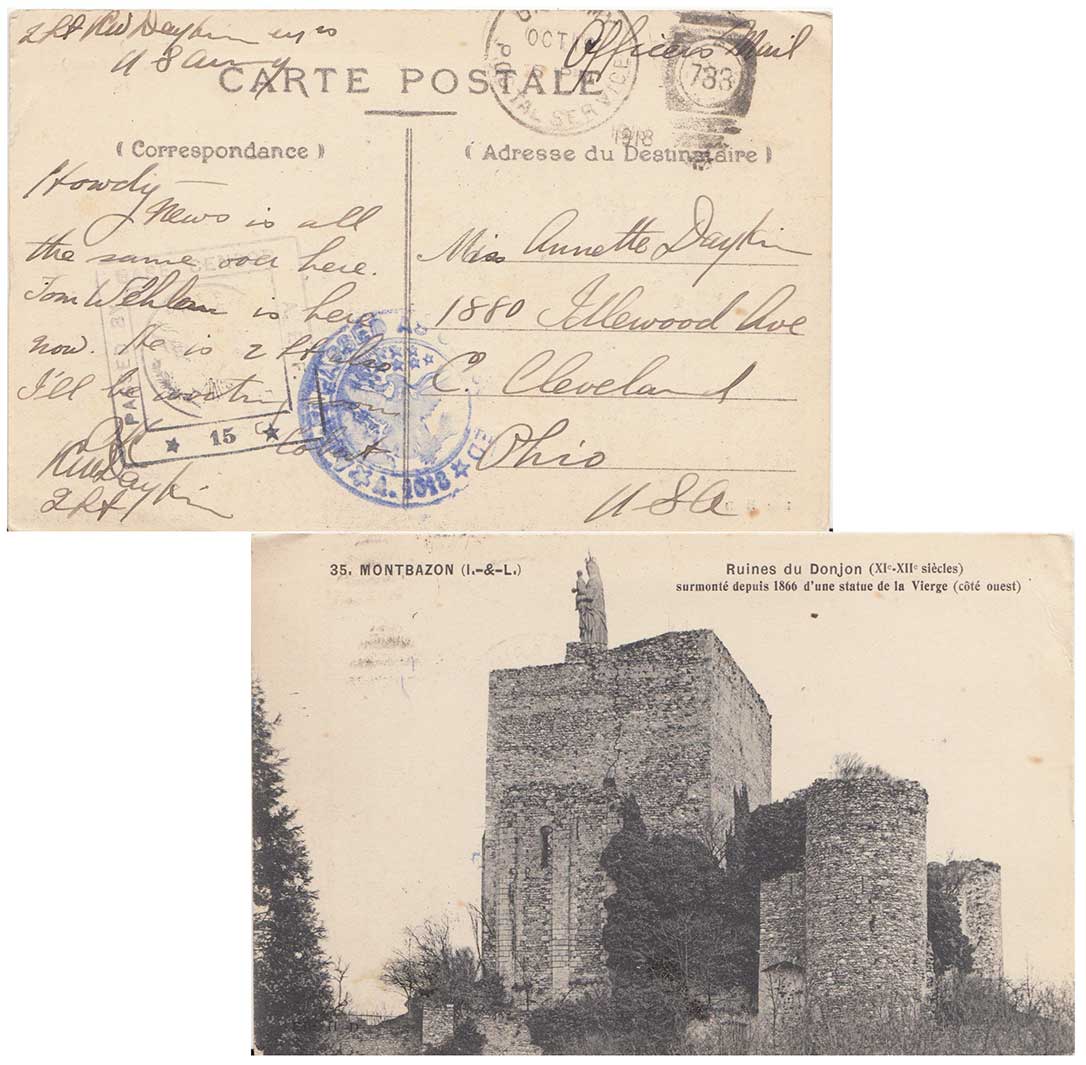 2 Lt RW Daykin
U S Army
Officers Mail
CARTE POSTALE
OCT
POSTAL SERVICE
1918
733
( Correspondance )
( Adresse du Destinataire )
Howdy —
News is all
the same over here.
Tom Whelan is here
now. He is 2 Lt also
I'll be writing
RW Daykin
2 Lt
Miss Annette Daykin
1880 Idlewood Ave
E. Cleveland
Ohio
USA
PASSED BASE CENSOR
★ 15 ★
PASSED AS CENSORED
★ A. 2018 ★
35. MONTBAZON (I.-&-L.)
Ruines du Donjon (XIe-XIIe siècles)
surmonté depuis 1866 d'une statue de la Vierge (côté ouest)